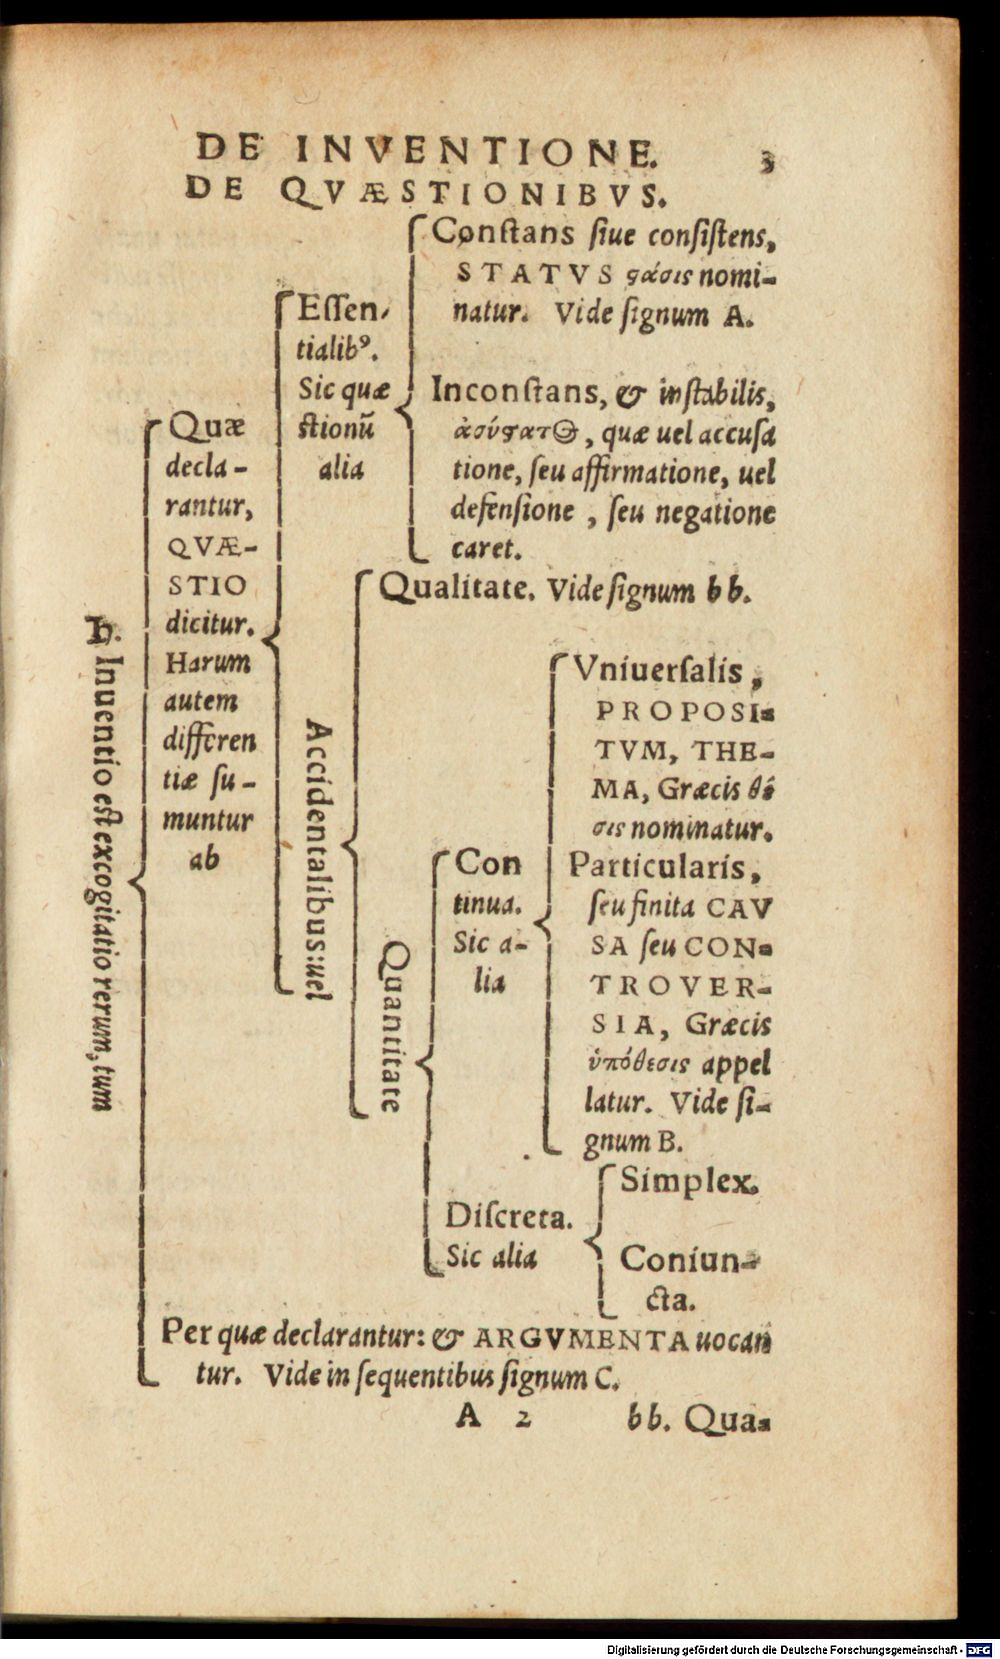 DE INVENTIONE. 3
DE QVÆSTIONIBVS.
b. Inuentio est excogitatio rerum, tum
Quæ
decla-
rantur,
QVÆ-
STIO
dicitur.
Harum
autem
differen
tiæ su-
muntur
ab
Essen-
tialibꝰ.
Sic quæ
stionũ
alia
Constans siue consistens,
STATVS ϛάσις nomi-
natur. Vide signum A.
Inconstans, & instabilis,
ἀσύϛατΘ, quæ uel accusa
tione, seu affirmatione, uel
defensione, seu negatione
caret.
Accidentalibus: uel
Qualitate. Vide signum bb.
Quantitate
Con
tinua.
Sic a-
lia
Vniuersalis,
PROPOSI-
TVM, THE-
MA, Græcis θέ
σις nominatur.
Particularis,
seu finita CAV
SA seu CON-
TROVER-
SIA, Græcis
ὑπόθεσις appel
latur. Vide si-
gnum B.
Discreta.
Sic alia
Simplex.
Coniun-
cta.
Per quæ declarantur: & ARGVMENTA uocan
tur. Vide in sequentibus signum C.
A 2 bb. Qua-
Digitalisierung gefördert durch die Deutsche Forschungsgemeinschaft - DFG